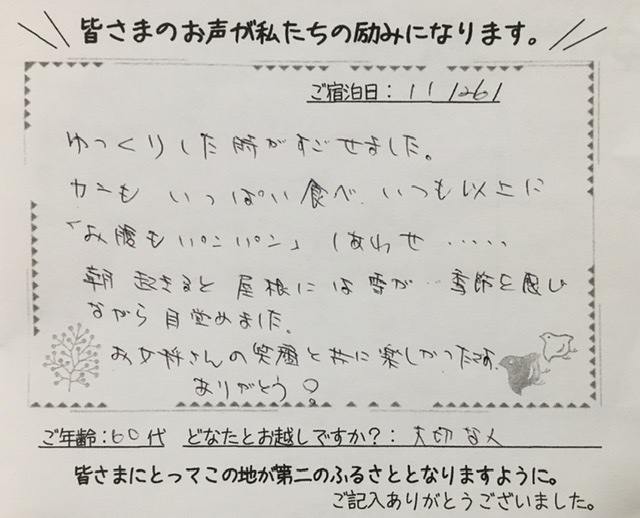 皆さまのお声が私たちの励みになります。
ご宿泊日:11/26
ゆっくりした時がすごせました。
カニも いっぱい食べ、いつも以上に
「お腹もパンパン」 しあわせ・・・・・
朝 起きると 屋根には雪が…季節を感じ
ながら目覚めました。
お女将さんの笑顔と共に楽しかったです。
ありがとう!
ご年齢:60代 どなたとお越しですか?:大切な人
皆さまにとってこの地が第二のふるさととなりますように。
ご記入ありがとうございました。